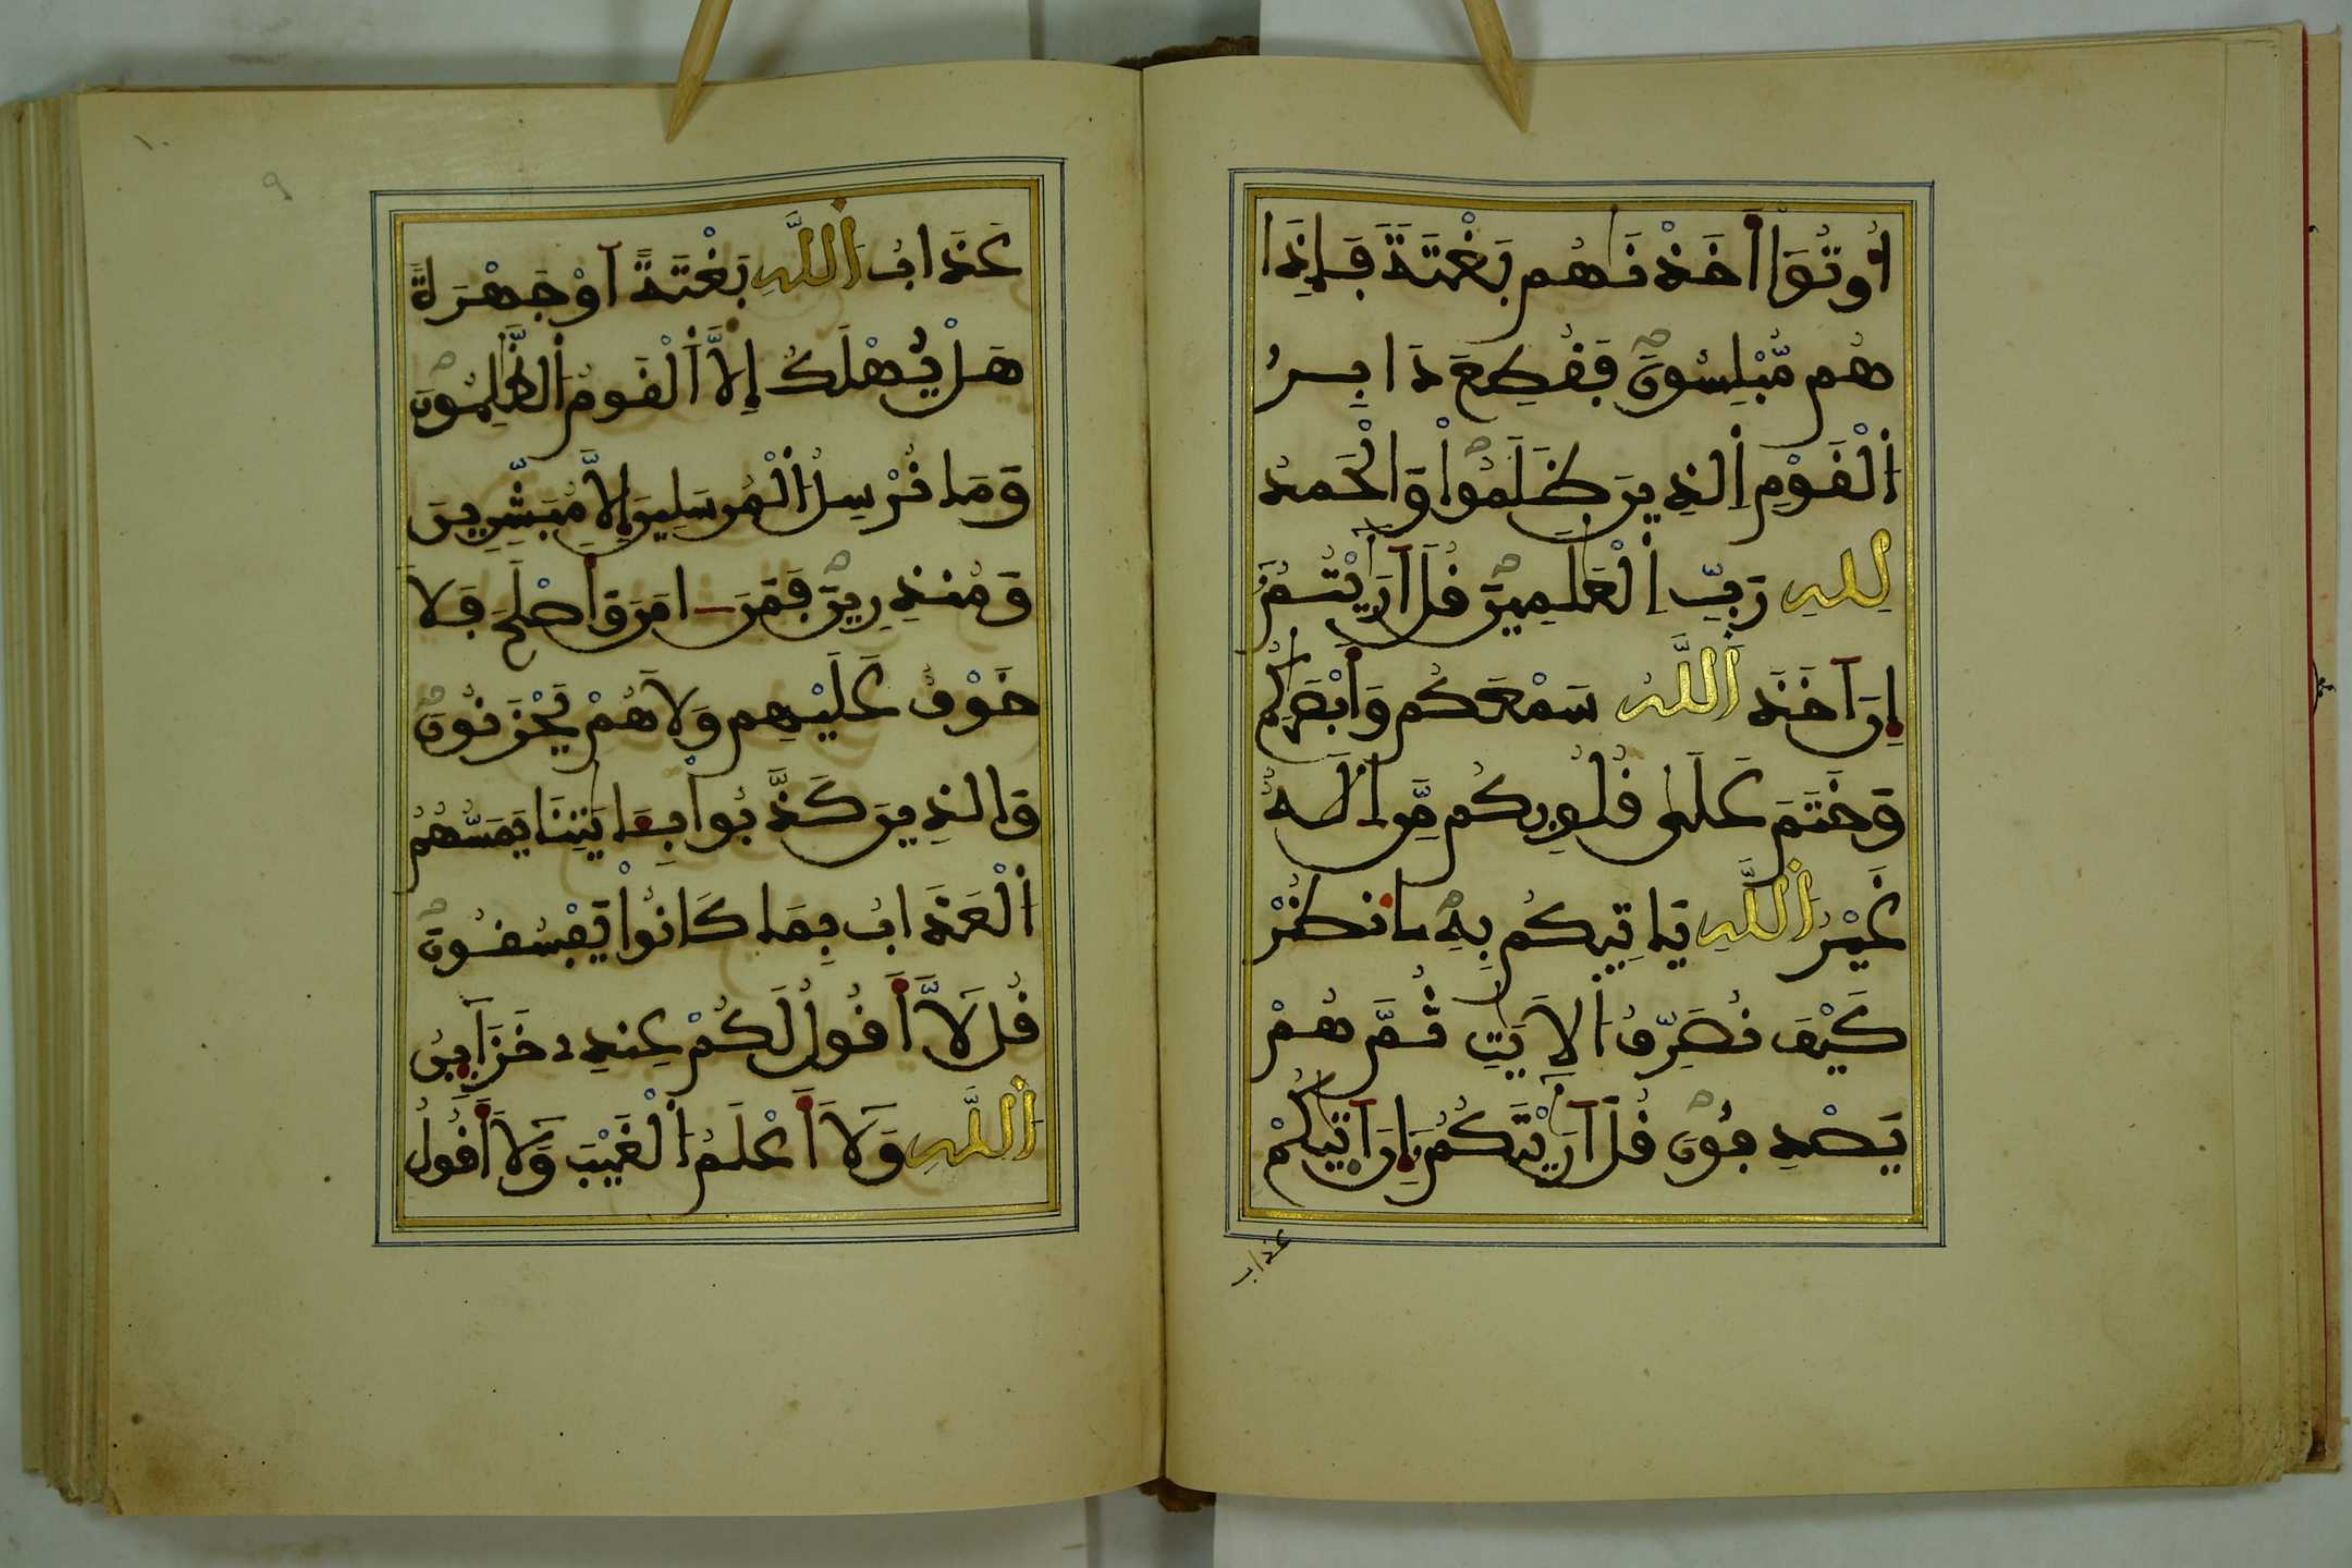 أُوتُوٓاْ أَخَذْنَٰهُم بَغْتَةً فَإِذَا
هُم مُّبْلِسُونَ فَقُطِعَ دَابِرُ
اُ۬لْقَوْمِ اِ۬لذِينَ ظَلَمُواْ وَالْحَمْدُ
لِلهِ رَبِّ اِ۬لْعَٰلَمِينَ قُلَ اَرَٰٓيْتُمُۥٓ
إِنَ اَخَذَ اَ۬للَّهُ سَمْعَكُمْ وَأَبْصَٰرَكُمْ
وَخَتَمَ عَلَىٰ قُلُوبِكُم مَّنِ اِلَٰهٌ
غَيْرُ اُ۬للَّهِ يَاتِيكُم بِهِ اِ۟نظُرْ
كَيْفَ نُصَرِّفُ اُ۬لَايَٰتِ ثُمَّ هُمْ
يَصْدِفُونَ قُلَ اَرَٰٓيْتَكُمُۥٓ إِنَ اَتٰىكُمْ
عذاب
عَذَابُ اُ۬للَّهِ بَغْتَةً اَوْ جَهْرَةً
هَلْ يُهْلَكُ إِلَّا اَ۬لْقَوْمُ اُ۬لظَّٰلِمُونَ
وَمَا نُرْسِلُ اُ۬لْمُرْسَلِينَ إِلَّا مُبَشِّرِينَ
وَمُنذِرِينَ فَمَنَ اٰمَنَ وَأَصْلَحَ فَلَا
خَوْفٌ عَلَيْهِمْ وَلَا هُمْ يَحْزَنُونَ
وَالذِينَ كَذَّبُواْ بِـَٔايَٰتِنَا يَمَسُّهُمُ
اُ۬لْعَذَابُ بِمَا كَانُواْ يَفْسُقُونَ
قُل لَّآ أَقُولُ لَكُمْ عِندِے خَزَآئِنُ
اُ۬للَّهِ وَلَآ أَعْلَمُ اُ۬لْغَيْبَ وَلَآ أَقُولُ